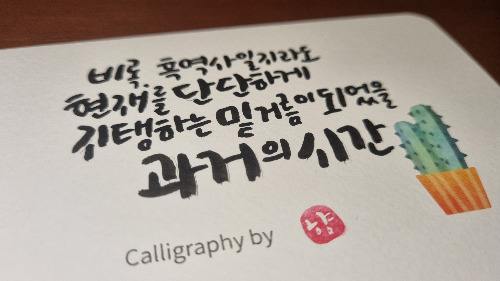 비록, 흑역사일지라도
현재를 단단하게
지탱하는 밑거름이 되었을
과거의 시간
Calligraphy by